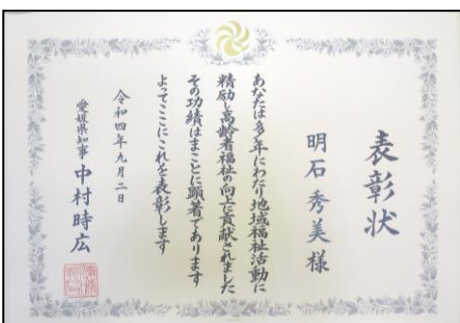 表彰状
明石秀美様
あなたは多年にわたり地域福祉活動に
精励し高齢者福祉の向上に貢献されました
その功績はまことに顕著であります
よってここにこれを表彰します
令和四年九月二日
愛媛県知事 中村時広